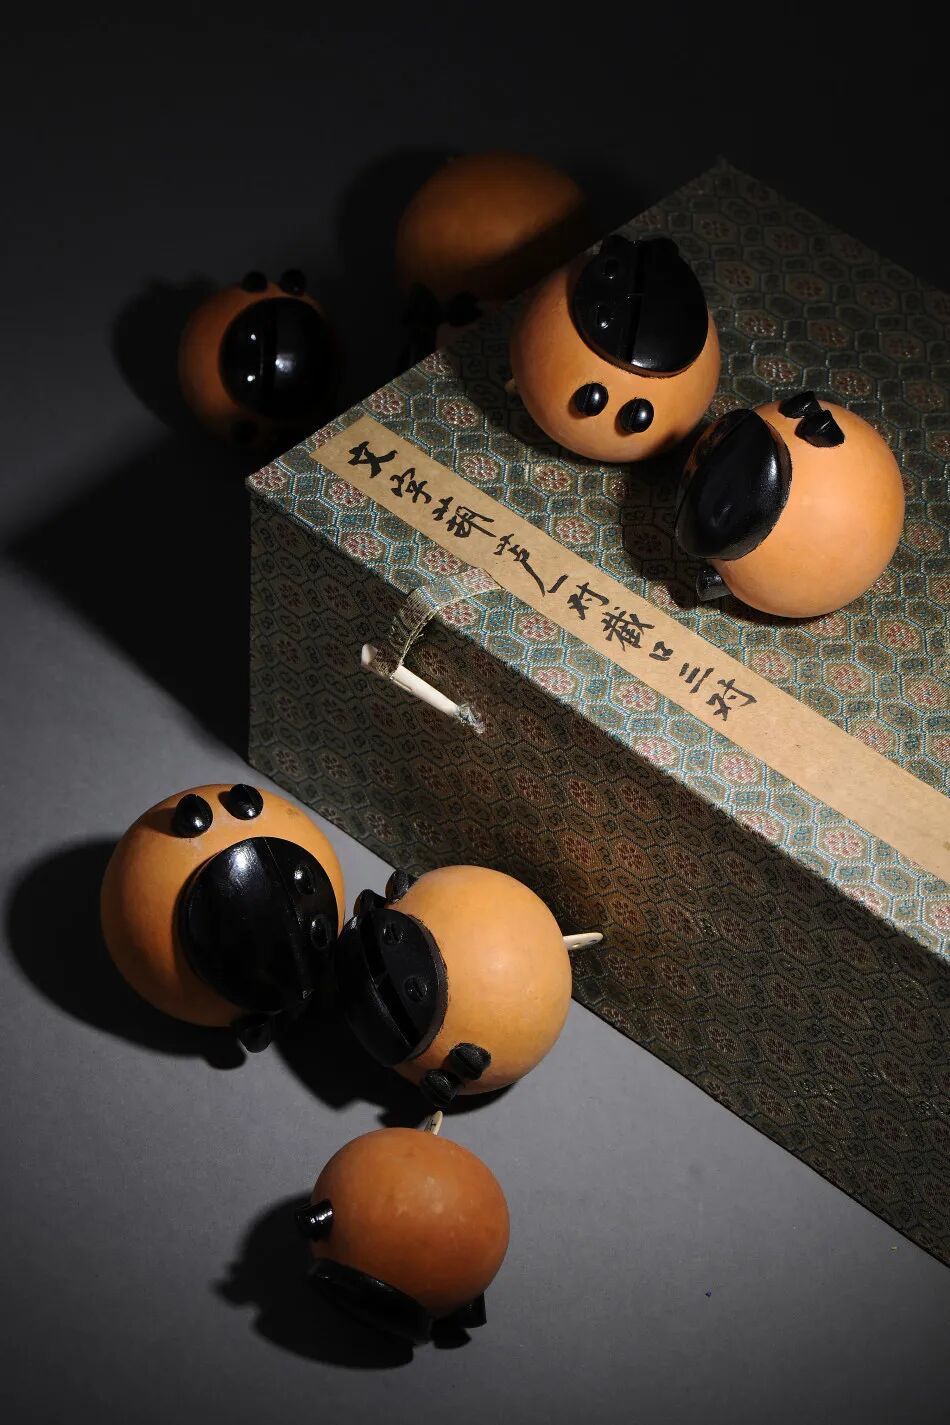 文字葫芦一对截口三对